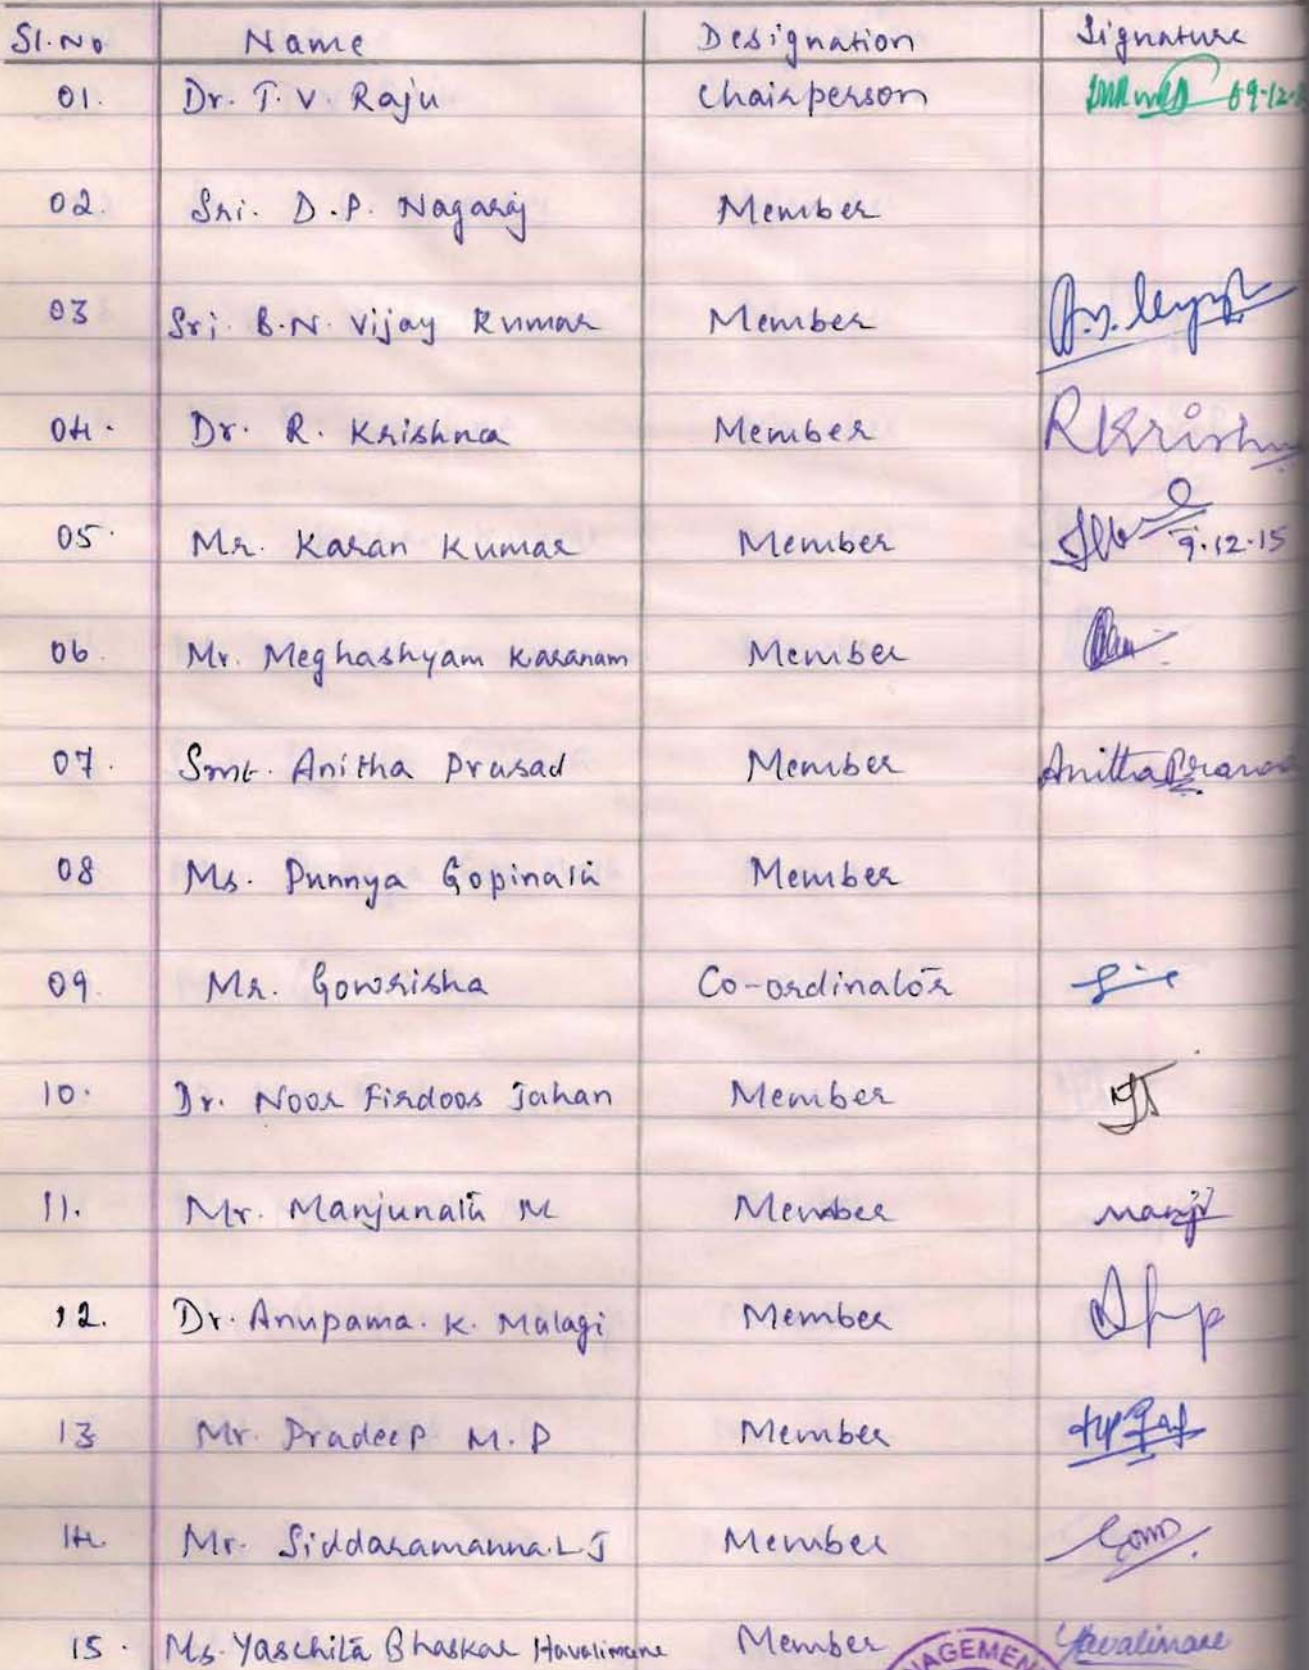 Sl.No Name Designation Signature
01. Dr. T. V. Raju Chairperson 09-12-
02. Sri. D.P. Nagaraj Member
03 Sri. B.N. Vijay Kumar Member
04. Dr. R. Krishna Member RKrishn
05. Mr. Karan Kumar Member 9.12.15
06 Mr. Meghashyam Karanam Member
07. Smt. Anitha Prasad Member Anitha Prasa
08 Ms. Punnya Gopinath Member
09. Mr. Gowrisha Co-ordinator
10. Dr. Noor Firdoos Jahan Member
11. Mr. Manjunath M Member Manju
12. Dr. Anupama. K. Malagi Member
13 Mr. Pradeep M.P Member
14. Mr. Siddaramanna. L J Member
15. Ms. Yaschita Bhaskar Havalimane Member
AGEMEN